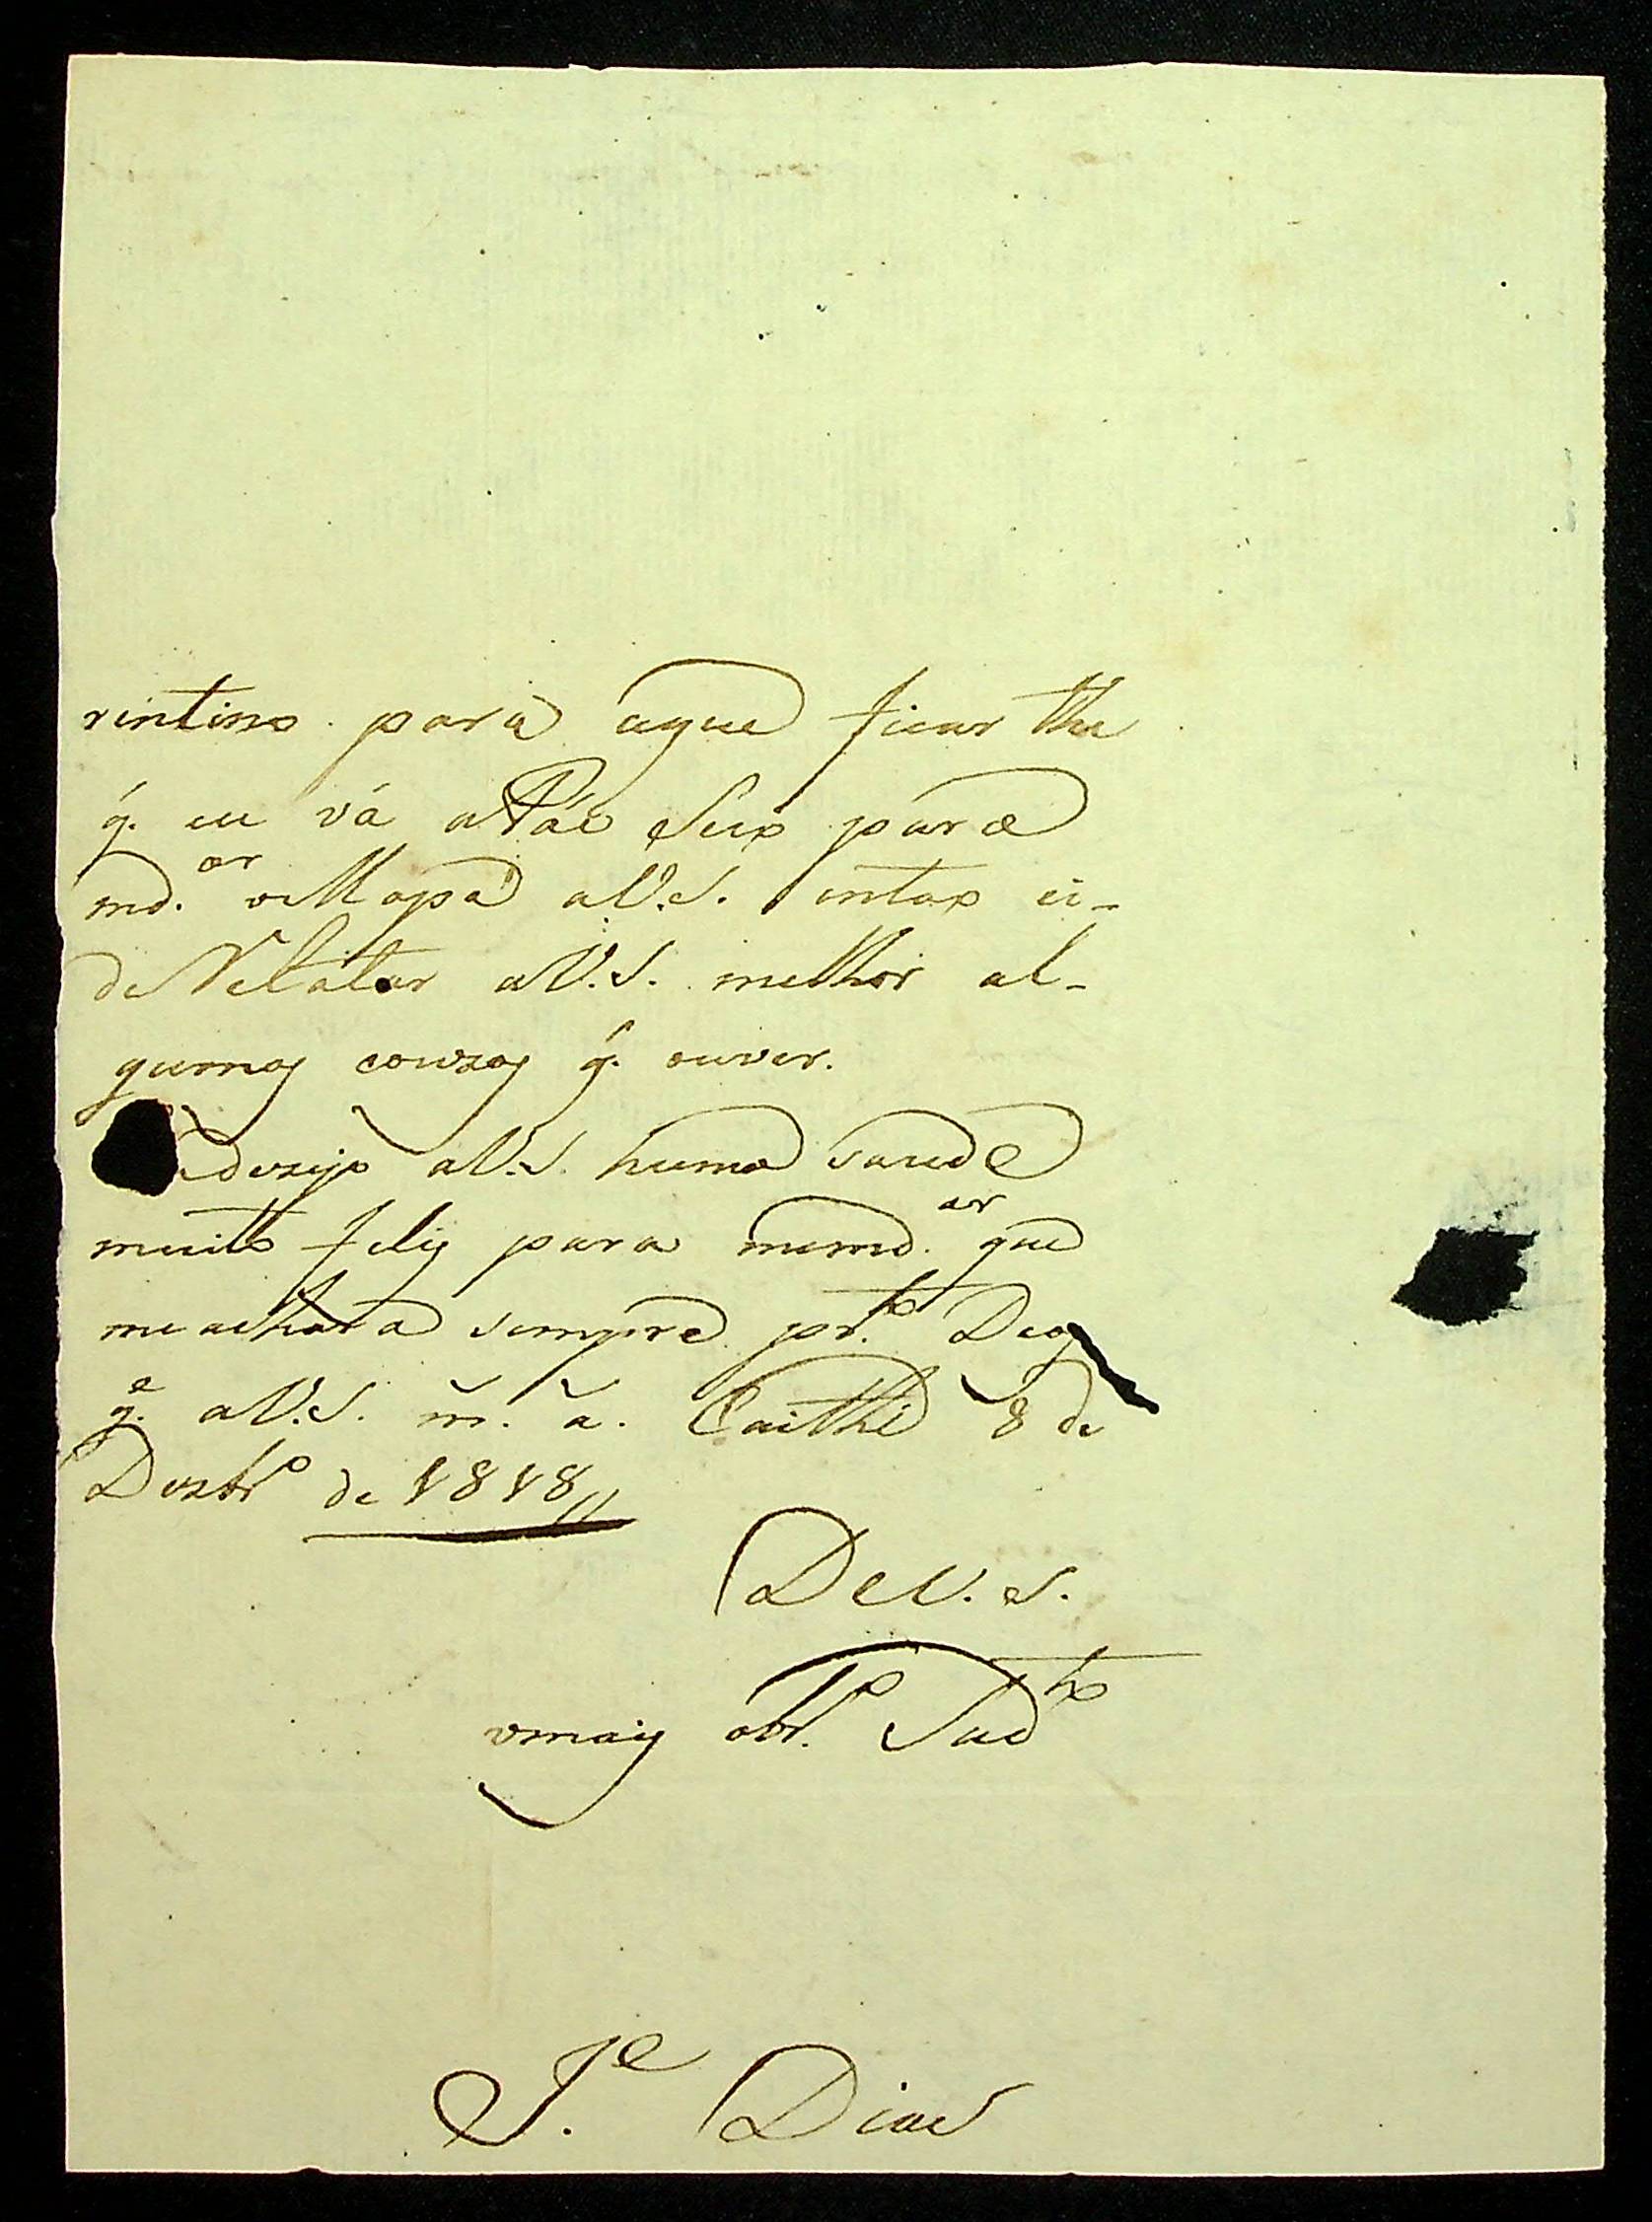 rintino para aque ficar the
q. eu vá a Páo Seco para
md.ar o Mapa a V.S. entao ei-
de Relatar a V.S. melhor al-
gumas couzas q. ouver.
dezejo a V.S. huma saude
muito felis para memd.ar que
me achará sempre pr.to Deos
g.e a V.S. m. a. Caithé 8 de
Dezbro de 1818
De V. S.
omais obr.o Sud.to
J.e Dias